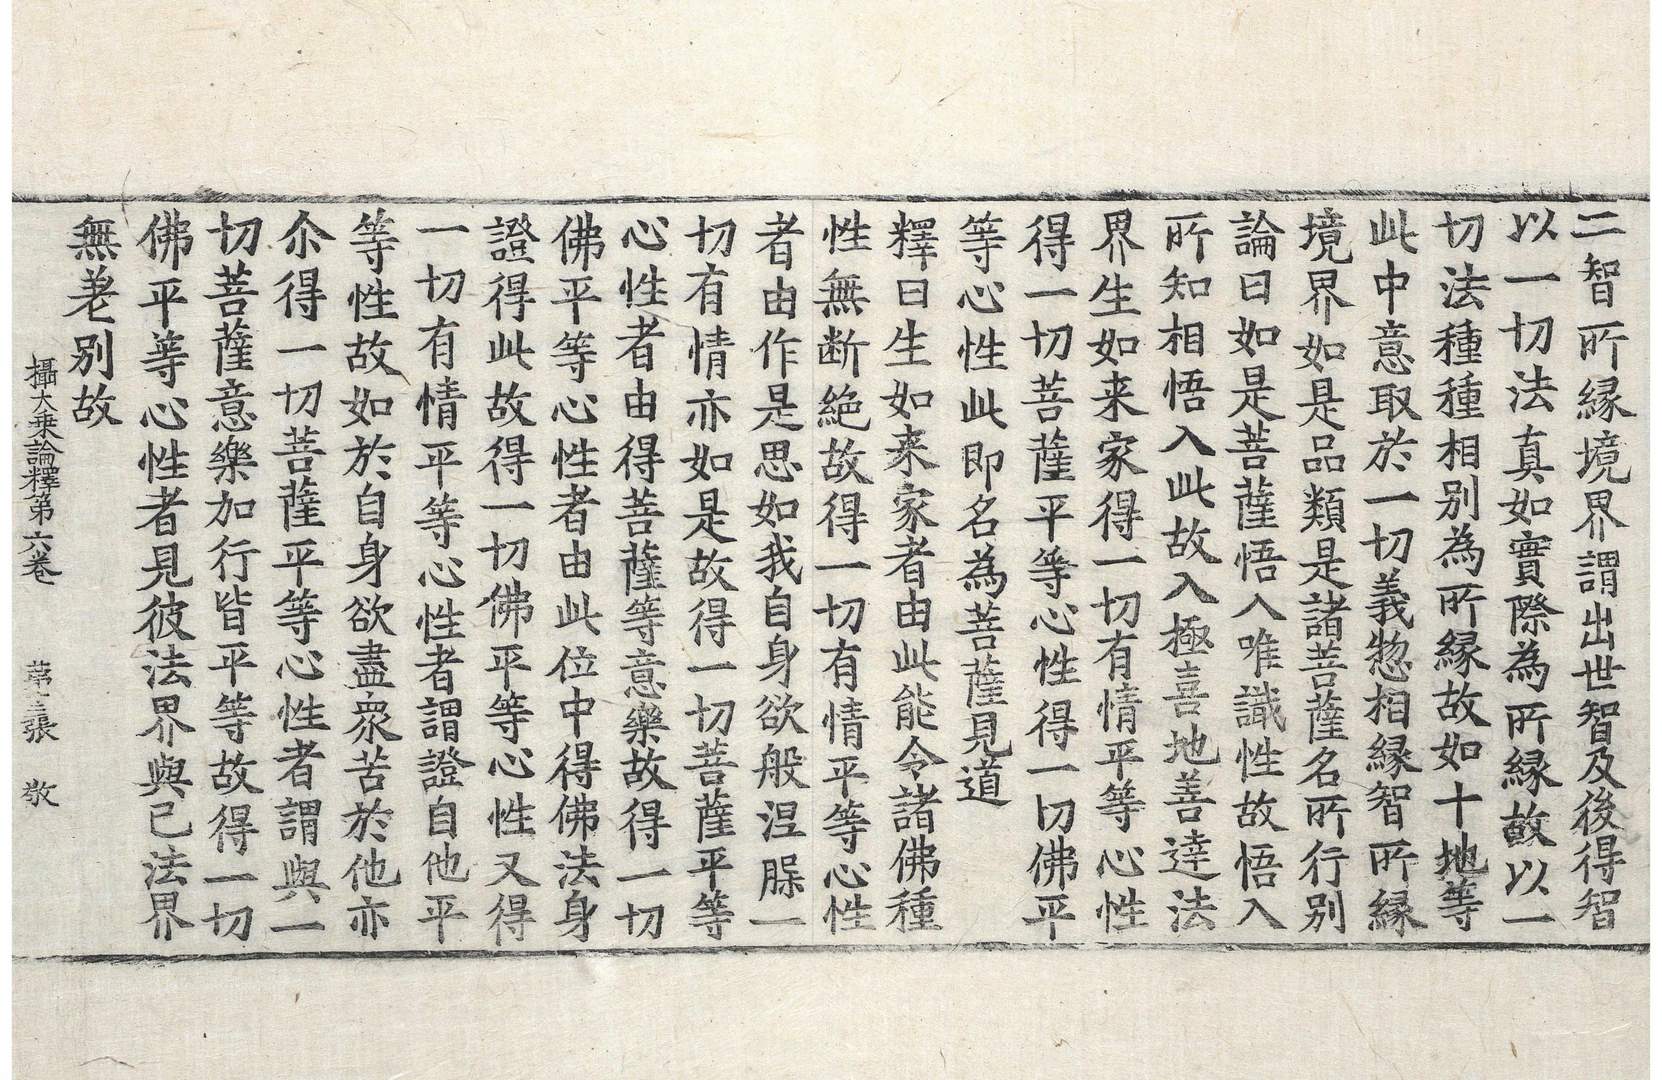 二智所縁境界謂出世智及後得智
以一切法真如實際為所縁故以一
切法種種相別為所縁故如十地等
此中意取於一切義惣相縁智所縁
境界如是品類是諸菩薩名所行別
論曰如是菩薩悟入唯識性故悟入
所知相悟入此故入極喜地善達法
界生如来家得一切有情平等心性
得一切菩薩平等心性得一切佛平
等心性此即名為菩薩見道
釋曰生如来家者由此能令諸佛種
性無断絶故得一切有情平等心性
者由作是思如我自身欲般涅槃一
切有情亦如是故得一切菩薩平等
心性者由得菩薩等意樂故得一切
佛平等心性者由此位中得佛法身
證得此故得一切佛平等心性又得
一切有情平等心性者謂證自他平
等性故如於自身欲盡衆苦於他亦
尒得一切菩薩平等心性者謂與一
切菩薩意樂加行皆平等故得一切
佛平等心性者見彼法界與已法界
無差别故
攝大乗論釋第六卷 第十三張 敬